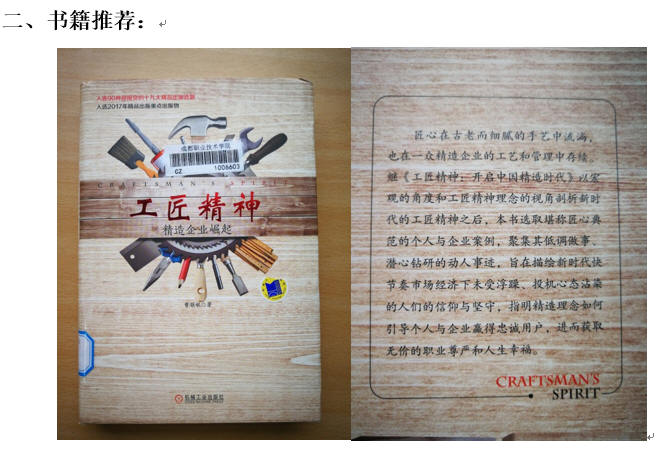 二、书籍推荐：
入选2017年精品出版重点出版物
成都职业技术学院
CZ 1006603
CRAFTSMAN'S SPIRIT
工匠精神
精造企业崛起
曹顺妮◎著
机械工业出版社
匠心在古老而细腻的手艺中流淌，
也在一众精造企业的工艺和管理中存续。
继《工匠精神：开启中国精造时代》以宏
观的角度和工匠精神理念的视角剖析新时
代的工匠精神之后，本书选取堪称匠心典
范的个人与企业案例，聚集其低调做事、
潜心钻研的动人事迹，旨在描绘新时代快
节奏市场经济下未受浮躁、投机心态沾染
的人们的信仰与坚守，指明精造理念如何
引导个人与企业赢得忠诚用户，进而获取
无价的职业尊严和人生幸福。
CRAFTSMAN'S
SPIRIT